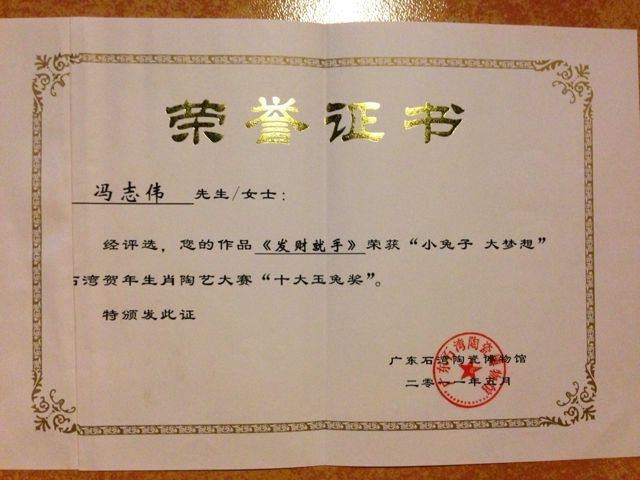 荣誉证书
冯志伟 先生/女士：
经评选，您的作品《发财就手》荣获“小兔子 大梦想”
石湾贺年生肖陶艺大赛“十大玉兔奖”。
特颁发此证
广东石湾陶瓷博物馆
二零一一年五月
广东石湾陶瓷博物馆